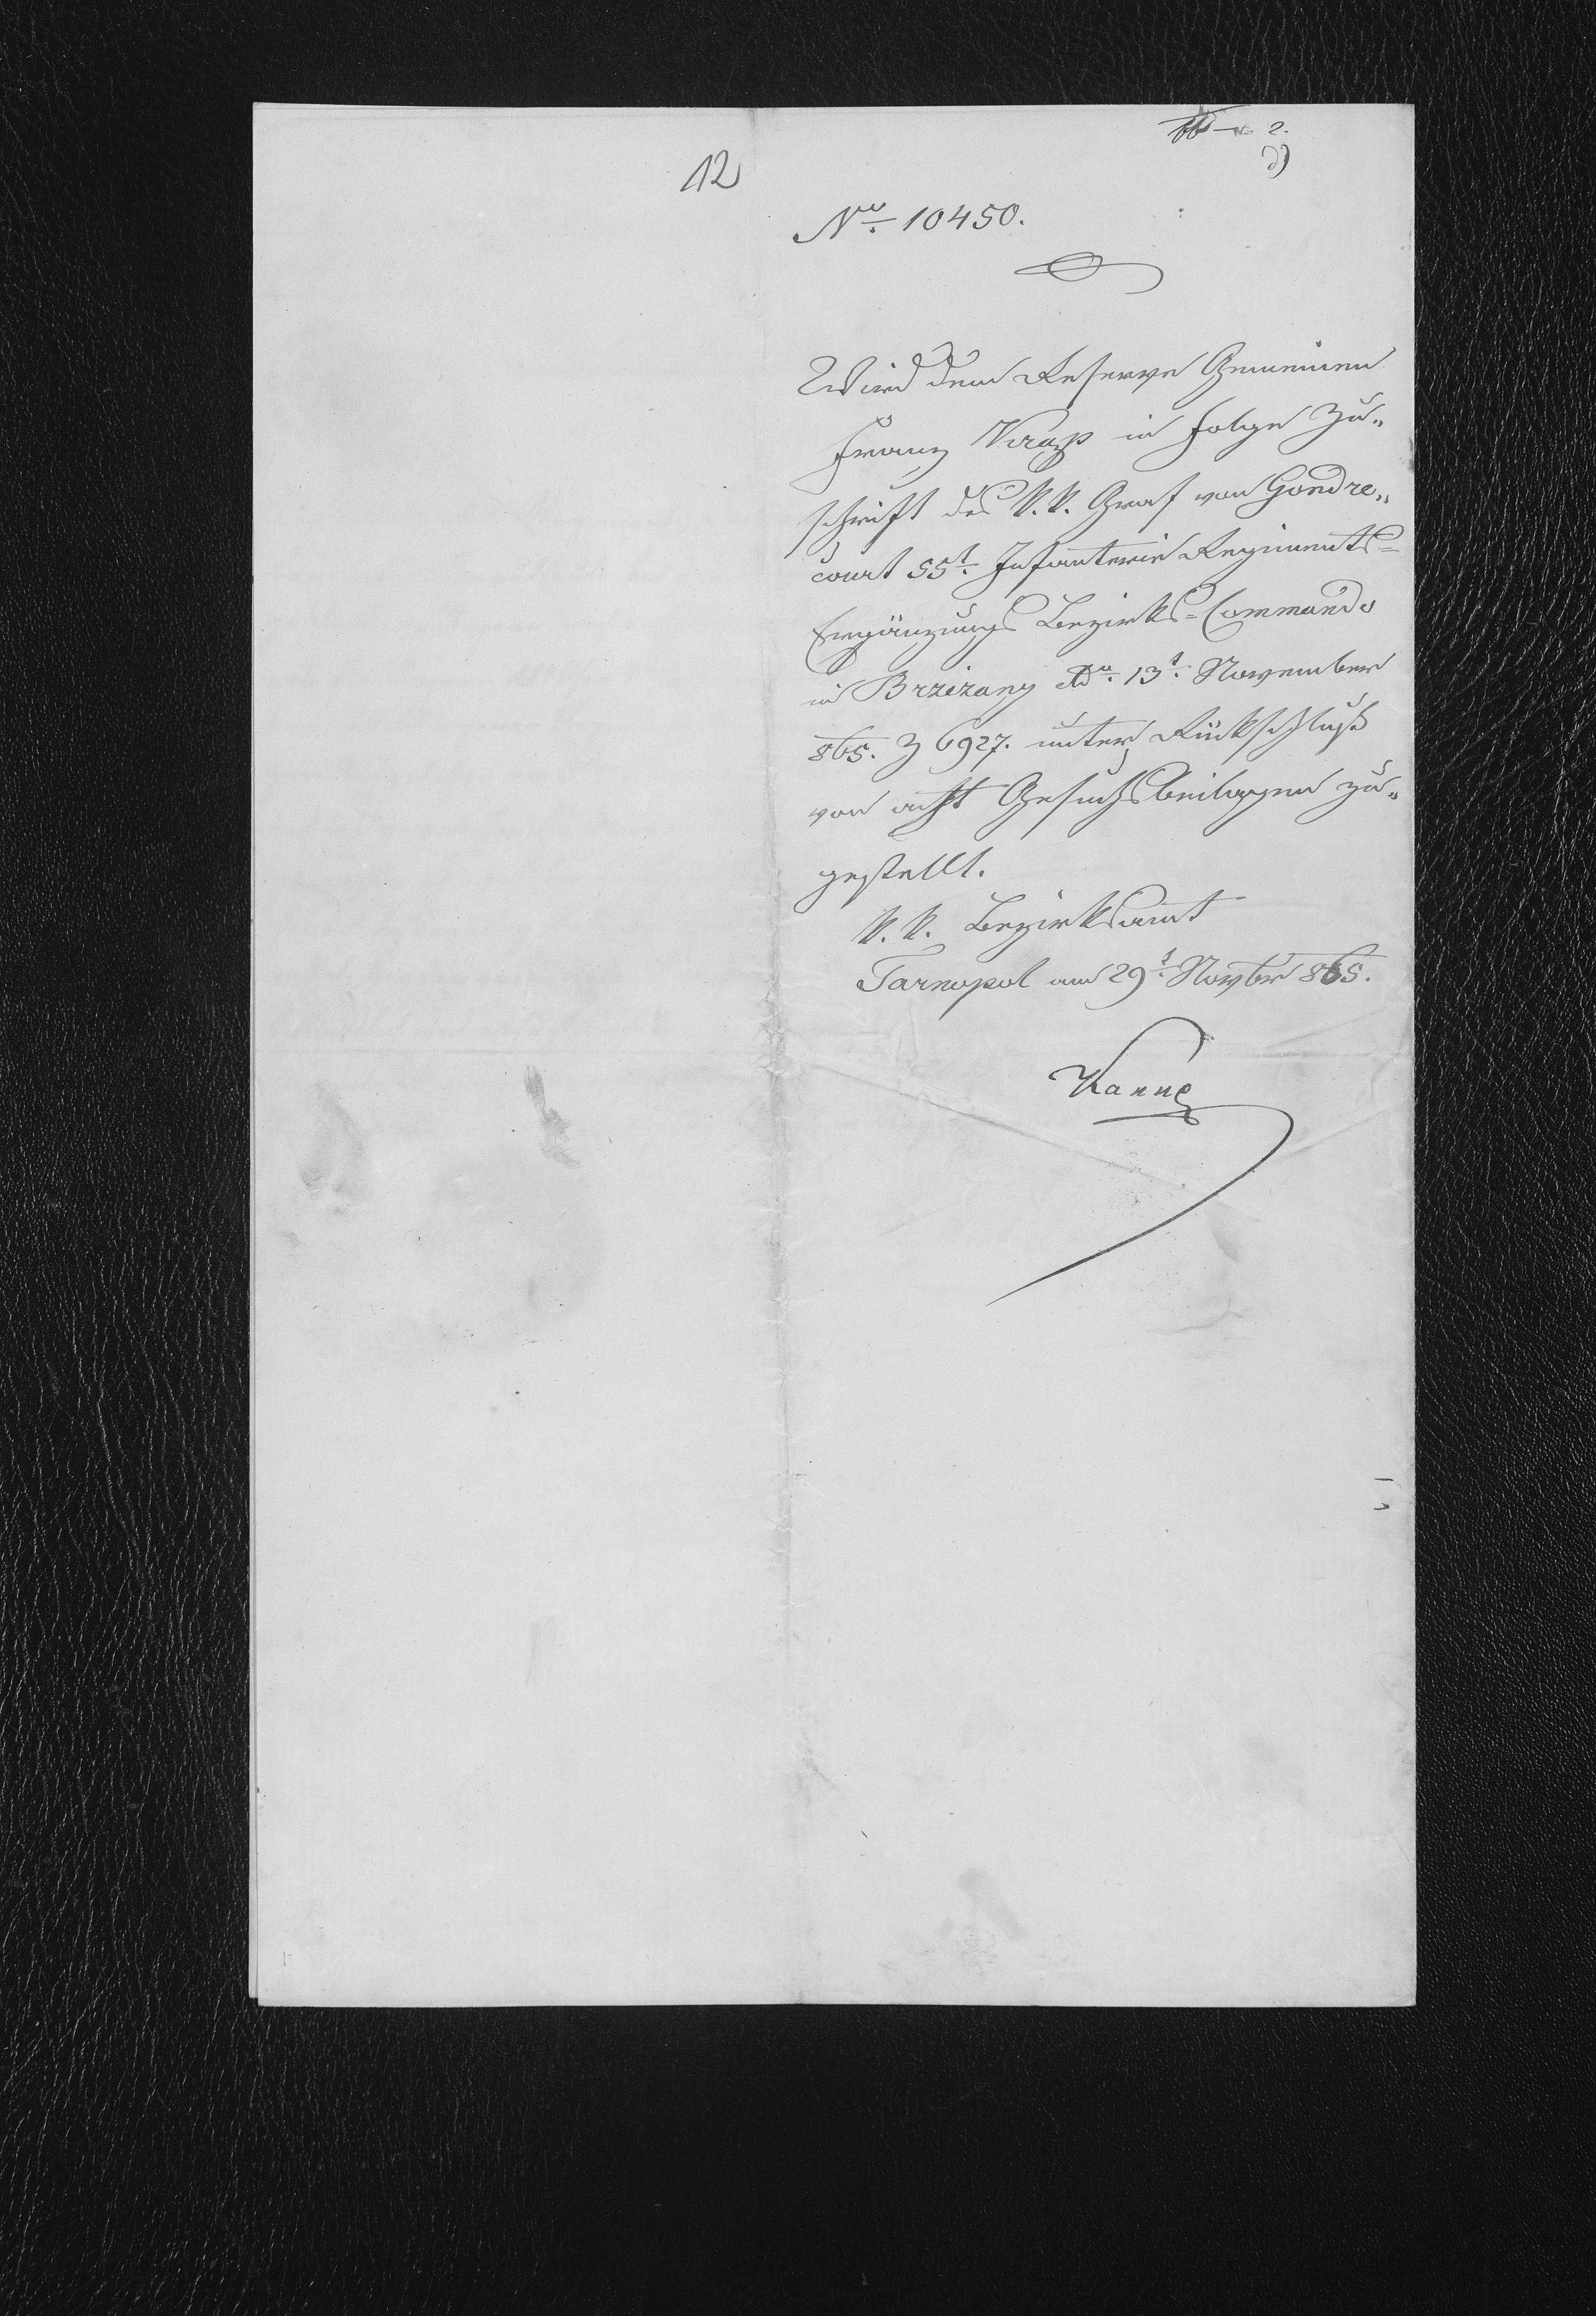 12
2.
d)
Nro. 10450.
Wird dem Reserve Gemeinen
Franz in Folge Zu„
schrift des k. k. Graf von Gondre„
court 55t. Infanterie Regiments=
Ergänzungs Bezirks=Commando
in Brzizany ddo. 13t. November
865. Z 6927. unter Rückschluß
von acht Gesuchsbeilagen zu„
gestellt.
k. k. Bezirksamt
Tarnopol am 29t. Novbr 865.
Kanne